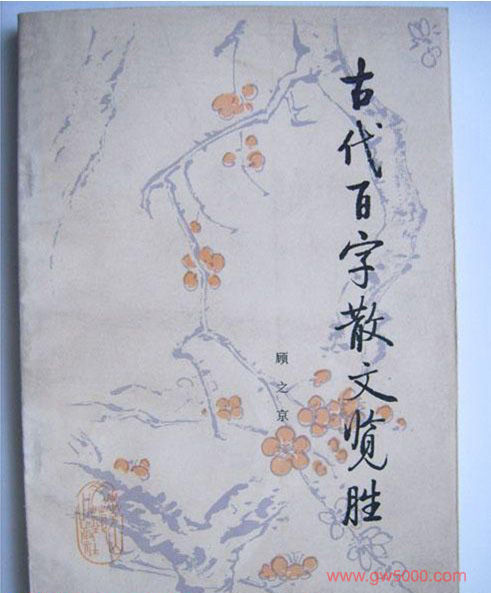 古代百字散文览胜
顾之京
www.gw5000.com